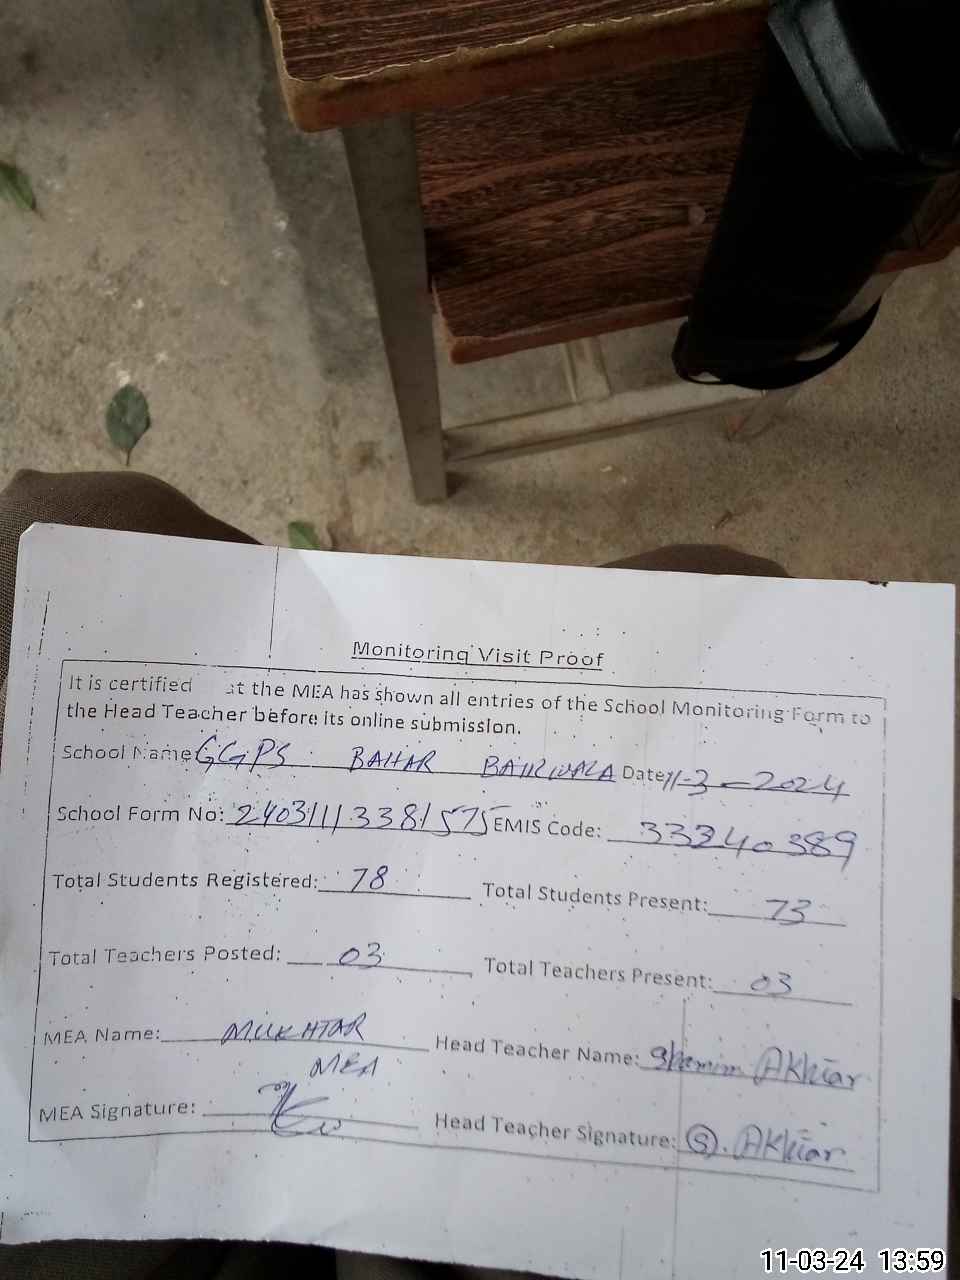 Monitoring Visit Proof
It is certified at the MEA has shown all entries of the School Monitoring Form to
the Head Teacher before its online submission.
School Name GGPS BAHAR Date 11-3-2024
School Form No: 24031113381575 EMIS Code: 33340389
Total Students Registered: 78 Total Students Present: 73
Total Teachers Posted: 03 Total Teachers Present: 03
MEA Name: MUKHTAR Head Teacher Name: Shamim Akhtar
MEA
MEA Signature: Head Teacher Signature: S. Akhtar
11-03-24 13:59